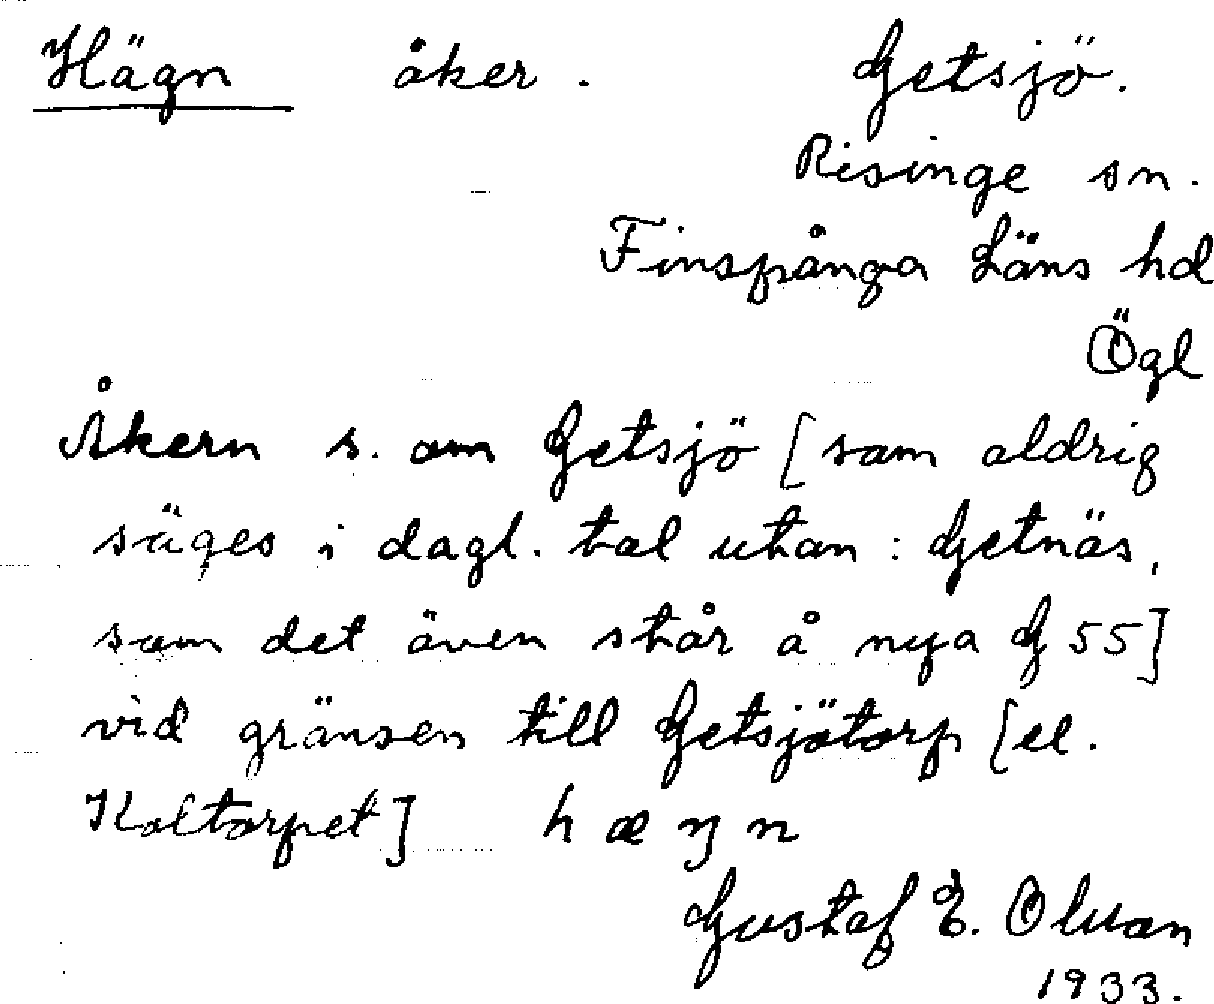 Hägn åker. Getsjö.
Risinge sn.
Finspånga Läns hd
Ögl
Åkern s. om Getsjö [som aldrig
säges i dagl. tal utan: Getnäs,
som det även står å nya G 55]
vid gränsen till Getsjötorp [el.
Koltorpet] hæŋn
Gustaf E.
1933.